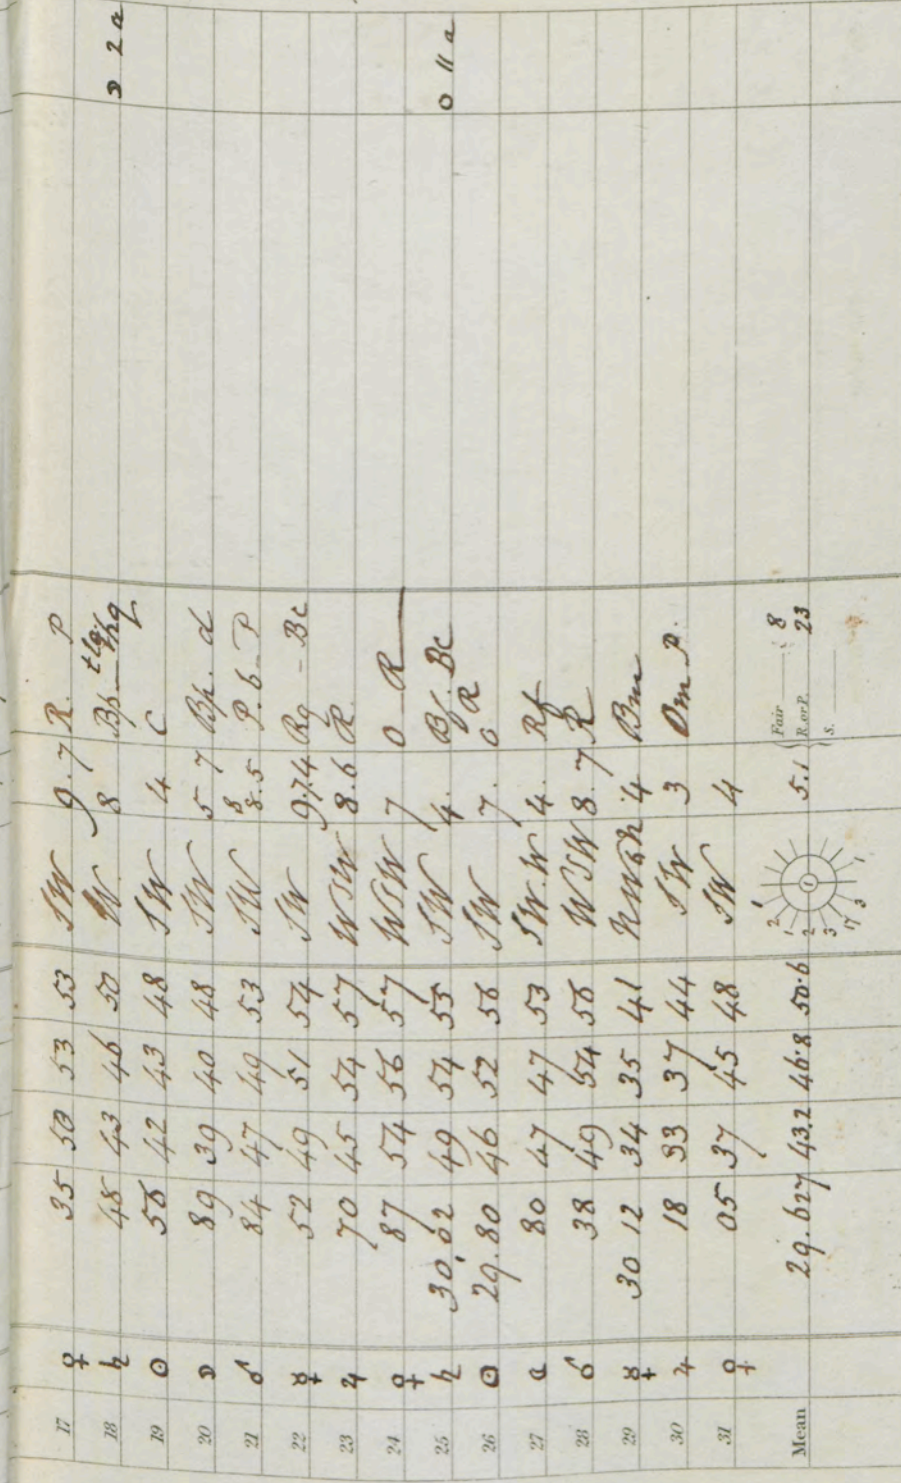 17 ♀ 35 50 53 53 SW 9.7 R. P
18 ♄ 48 43 46 50 W 8 ☽ 2a
19 ☉ 56 42 43 48 SW 4 C
20 ☽ 89 39 40 48 SW 5 7 d
21 ♂ 84 47 49 53 SW 8 8.5 P. b - P
22 ☿ 52 49 51 54 SW 9.7.4 Rg - Bc
23 ♃ 70 45 54 57 WSW 8.6 R
24 ♀ 87 54 56 57 WSW 7 O R
25 ♄ 30.02 49 54 55 SW 4. Bf. Bc O 11a
26 ☉ 29.80 46 52 56 SW 7. R
27 ☽ 80 47 47 53 SW.W 4. Rf
28 ♂ 38 49 54 56 WSW 8.7 R
29 ☿ 30 12 34 35 41 NWbN 4 Bm
30 ♃ 18 33 37 44 SW 3 Om P.
31 ♀ 05 37 45 48 SW 4
Mean 29.627 43.2 46.8 50.6 2 1 2 3 17 3 1 5.1 Fair 8
R. or P. 23
S.